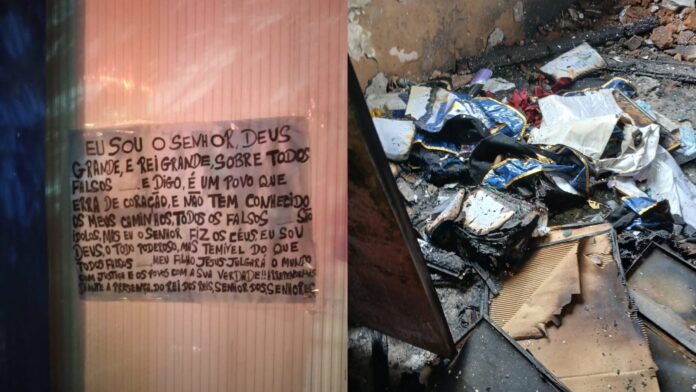 EU SOU O SENHOR, DEUS
GRANDE, E REI GRANDE, SOBRE TODOS
FALSOS E DIGO, É UM POVO QUE
ERRA DE CORAÇÃO, E NÃO TEM CONHECIDO
OS MEUS CAMINHOS, TODOS OS FALSOS SÃO
IDOLOS, MAS EU O SENHOR FIZ OS CÉUS EU SOU
DEUS, O TODO PODEROSO, MAS TEMIVEL DO QUE
TODOS FALSOS MEU FILHO JESUS JULGARÁ O MUNDO
COM JUSTIÇA E OS POVOS COM A SUA VERDADE!!
DIANTE A PRESENÇA, DO REI DOS REIS, SENHOR DOS SENHORES